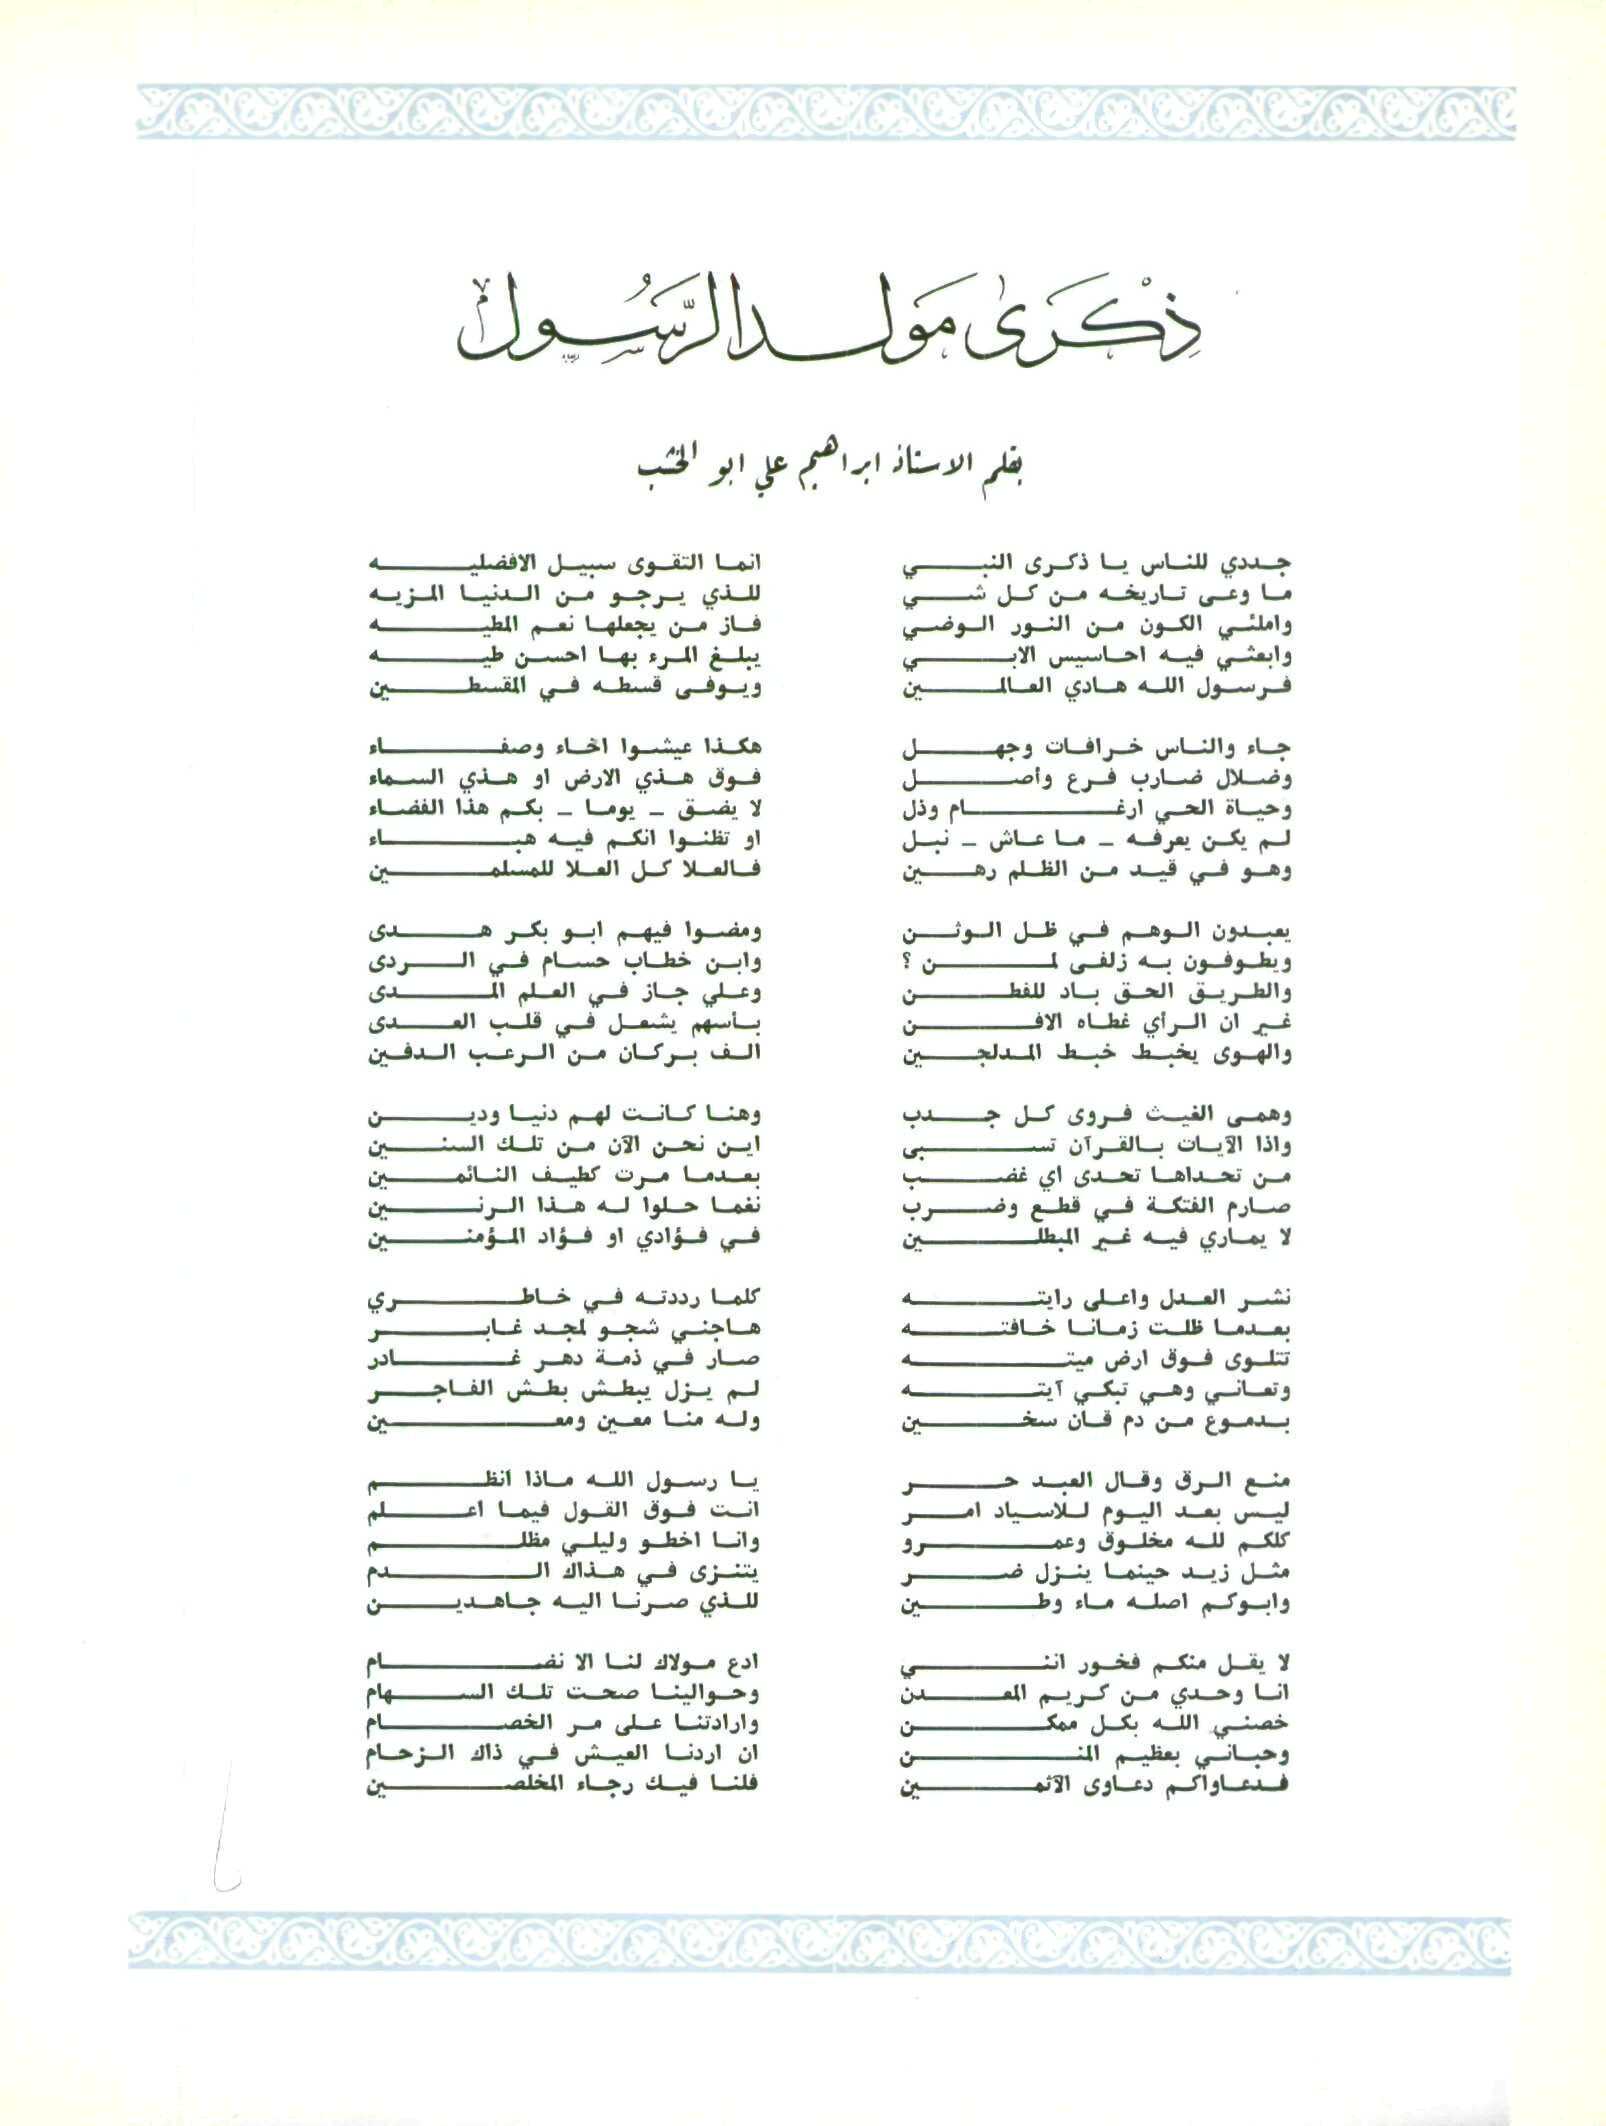 ذكرى مولد الرسول
بقلم الاستاذ ابراهيم علي ابو الخشب
جددي للناس يا ذكرى النبي
ما وعى تاريخه من كل شي
واملئي الكون من النور الوضي
وابعثي فيه احاسيس الابي
فرسول الله هادي العالمين
جاء والناس خرافات وجهل
وضلال ضارب فرع وأصل
وحياة الحي ارغام وذل
لم يكن يعرفه – ما عاش – نبل
وهو في قيد من الظلم رهين
يعبدون الوهم في ظل الوثن
ويطوفون به زلفى لمن ؟
والطريق الحق باد للفطن
غير ان الرأي غطاه الافن
والهوى يخبط خبط المدلجين
وهمى الغيث فروى كل جدب
واذا الآيات بالقرآن تسبى
من تحداها تحدى اي غضب
صارم الفتكة في قطع وضرب
لا يماري فيه غير المبطلين
نشر العدل واعلى رايته
بعدما ظلت زمانا خافته
تتلوى فوق ارض ميته
وتعاني وهي تبكي آيته
بدموع من دم قان سخين
منع الرق وقال العبد حر
ليس بعد اليوم للاسياد امر
كلكم لله مخلوق وعمرو
مثل زيد حينما ينزل ضر
وابوكم اصله ماء وطين
لا يقل منكم فخور انني
انا وحدي من كريم المعدن
خصني الله بكل ممكن
وحباني بعظيم المنن
فدعاواكم دعاوى الآثمين
انما التقوى سبيل الافضليه
للذي يرجو من الدنيا المزيه
فاز من يجعلها نعم المطيه
يبلغ المرء بها احسن طيه
ويوفى قسطه في المقسطين
هكذا عيشوا اخاء وصفاء
فوق هذي الارض او هذي السماء
لا يضق – يوما – بكم هذا الفضاء
او تظنوا انكم فيه هباء
فالعلا كل العلا للمسلمين
ومضوا فيهم ابو بكر هدى
وابن خطاب حسام في الردى
وعلي جاز في العلم المدى
بأسهم يشعل في قلب العدى
الف بركان من الرعب الدفين
وهنا كانت لهم دنيا ودين
اين نحن الآن من تلك السنين
بعدما مرت كطيف النائمين
نغما حلوا له هذا الرنين
في فؤادي او فؤاد المؤمنين
كلما رددته في خاطري
هاجني شجو لمجد غابر
صار في ذمة دهر غادر
لم يزل يبطش بطش الفاجر
وله منا معين ومعين
يا رسول الله ماذا انظم
انت فوق القول فيما اعلم
وانا اخطو وليلي مظلم
يتنزى في هذاك الدم
للذي صرنا اليه جاهدين
ادع مولاك لنا الا نضام
وحوالينا صحت تلك السهام
وارادتنا على مر الخصام
ان اردنا العيش في ذاك الزحام
فلنا فيك رجاء المخلصين